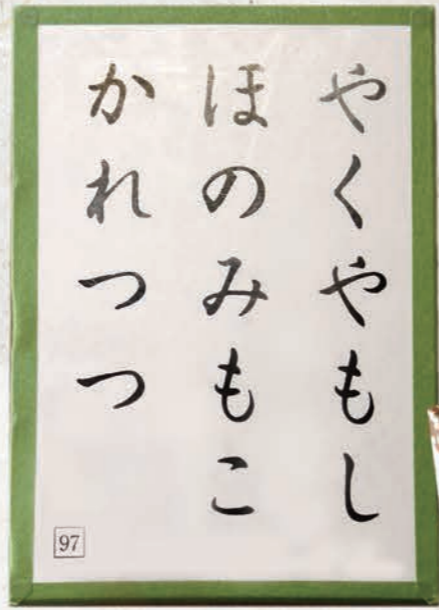 やくやもし
ほのみもこ
かれつつ
97